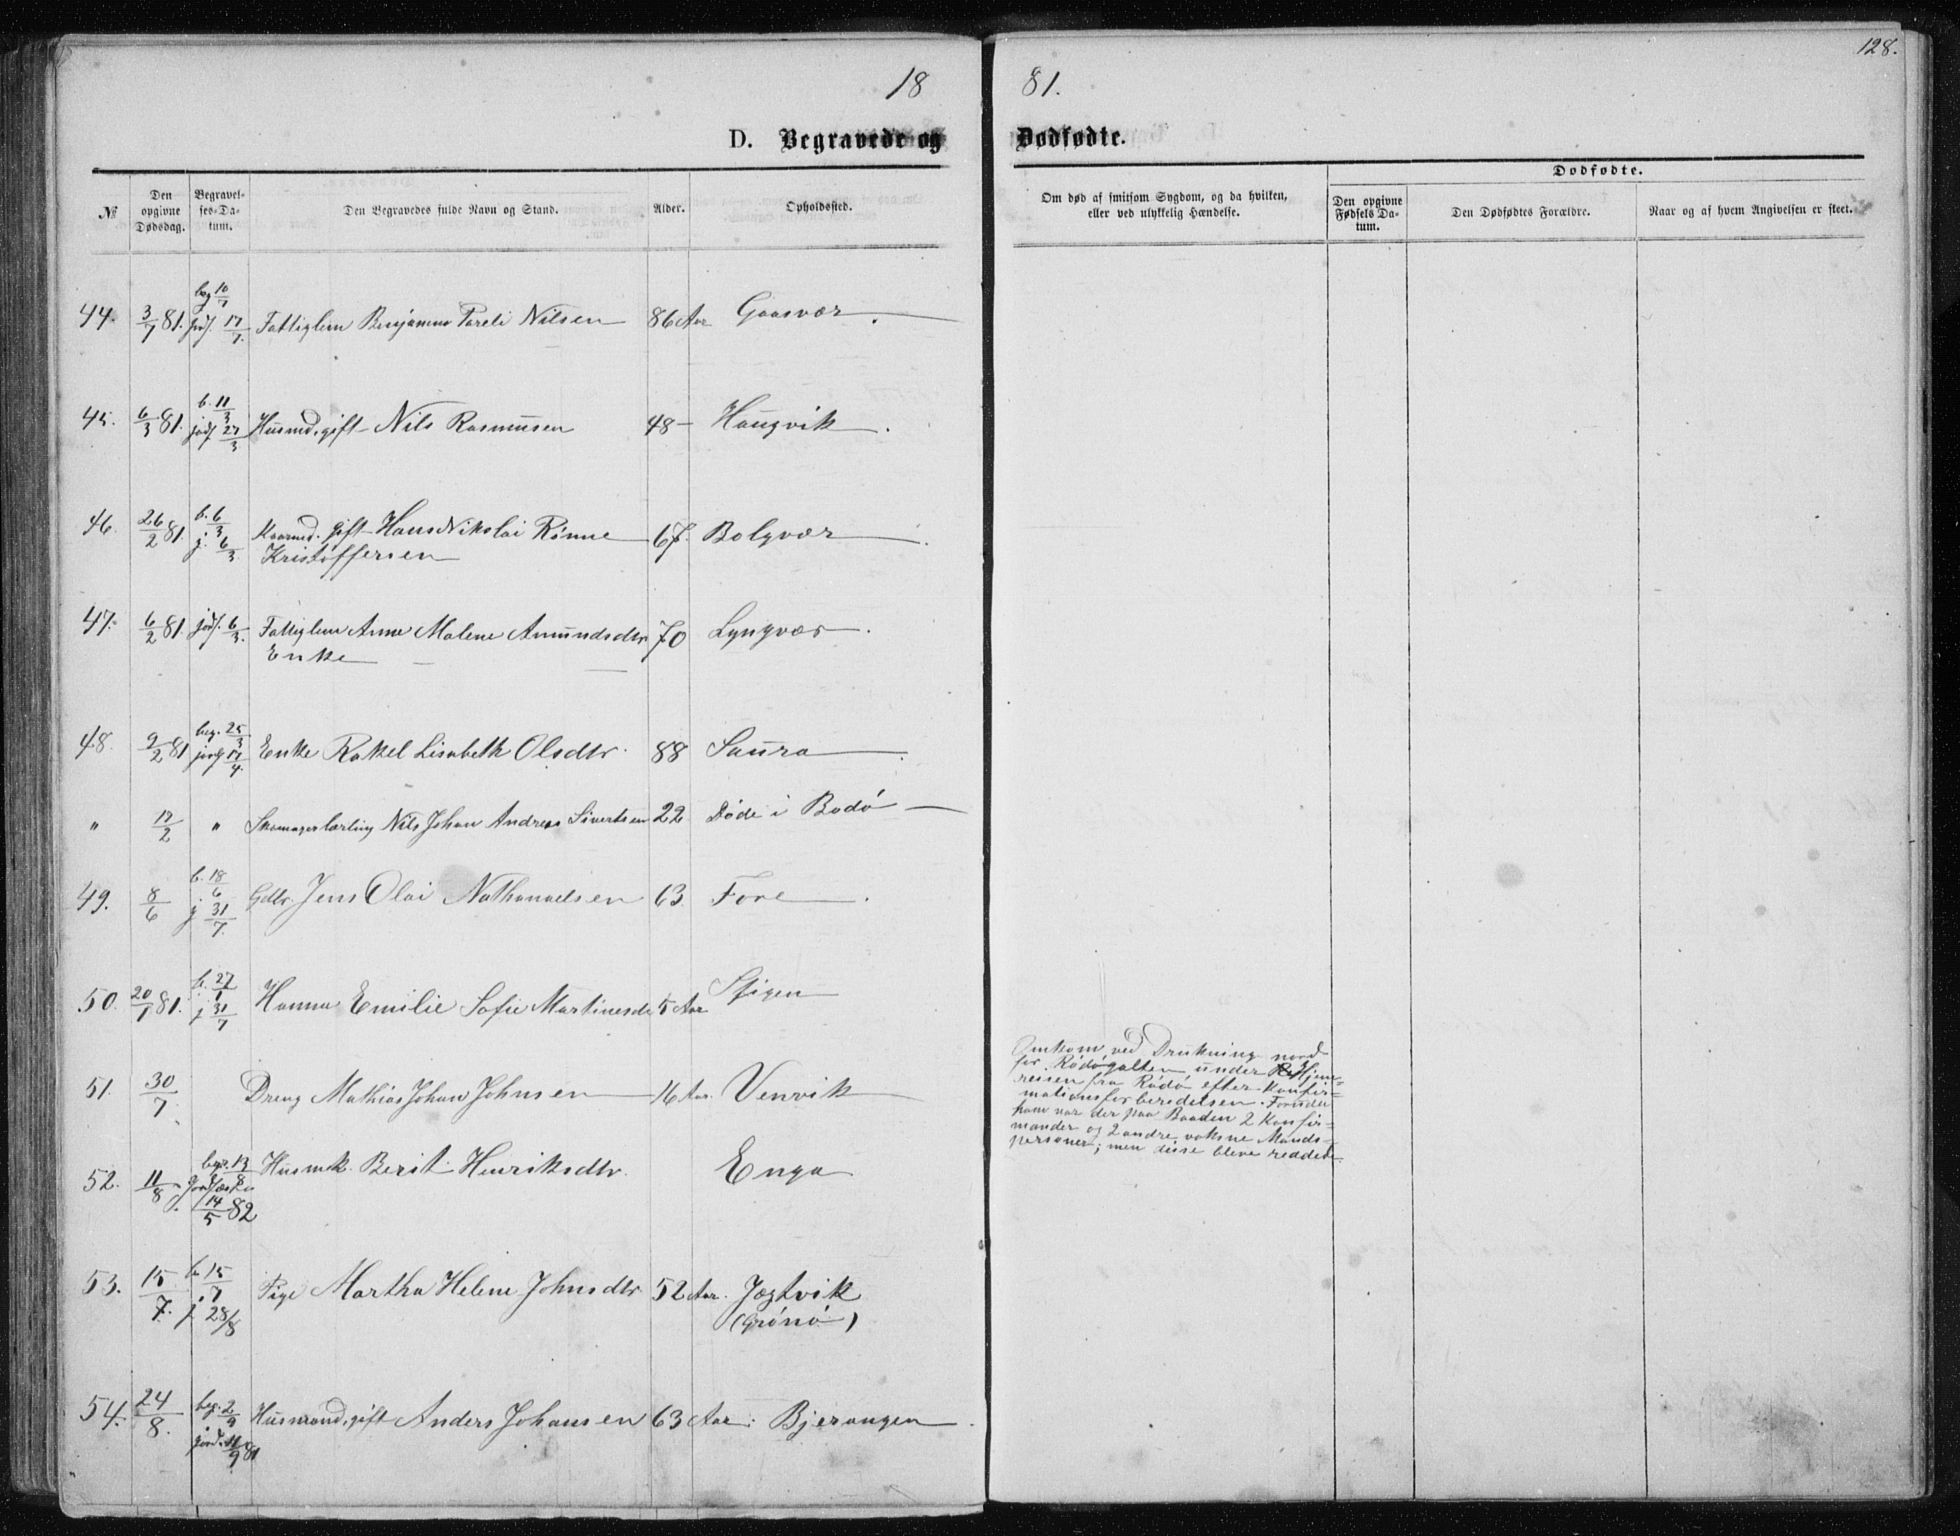 128.
18 81.
D. Begravede og Dødfødte.
№
Den opgivne Dødsdag.
Begravelses-Datum.
Den Begravedes fulde Navn og Stand.
Alder.
Opholdssted.
Om død af smitsom Sygdom, og da hvilken, eller ved ulykkelig Hændelse.
Dødfødte.
Den opgivne Fødsels Datum.
Den Dødfødtes Forældre.
Naar og af hvem Angivelsen er skeet.
44. 3/7 81. beg 10/7 jordf. 17/7. Fattiglem Benjamin Pareli Nilsen 86 Aar Gaasvær
45. 6/3 81. b. 11/3 jordf 27/3 Husmd. gift Nils Rasmusen 48 - Haugvik
46. 26/2 81. b. 6/3 j. 6/3 Kaarmd. gift Hans Nikolai Rönne
Kristoffersen 67. Bolgvær
47. 6/2 81. jordf. 6/3. Fattiglem Anne Malene Amundsdtr
Enke 70 Lyngvær
48. 9/2 81 beg. 25/3 jordf 17/4. Enke Rakel Lisabeth Olsdtr. 88 Saura
" 17/2 " Skomagerlærling Nils Johan Andreas Sivertsen 22 Döde i Bodö
49. 8/6 b. 18/6 j. 31/7. Gdbr. Jens Olai Nathanaelsen 63 Fore
50. 20/1 81. b. 27/1 j 31/7 Hanna Emilie Sofie Martinesdr 5 Aar Spigen
51. 30/7 Dreng Mathias Johan Johnsen 16 Aar. Venvik
Omkom ved Drukning nord
for Rödögalten under Hjem-
reisen fra Rödö efter Konfir-
mationsforberedelsen. Foruden
ham var der paa Baaden 2 Konfir-
mander og 2 andre voksne Mands-
personer; men disse bleve reddede.
52. 11/8 begr. 13/8 Jordfæstn 14/5 82 Husmk. Berit Henriksdtr. Enga
53. 15/7. b. 15/7 j. 28/8 Pige Martha Helene Johnsdtr 52 Aar. Jægtvik
(Grönö)
54. 24/8. beg. 2/9 jord. 11/9 81 Husmand, gift Anders Johansen 63 Aar: Bjerangen